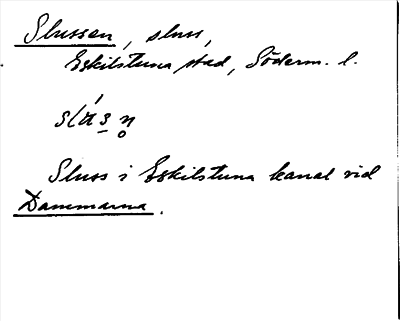 Slussen, sluss,
Eskilstuna stad, Söderm. l.
slu̍s̲n̥
Sluss i Eskilstuna kanal vid
Dammarna.